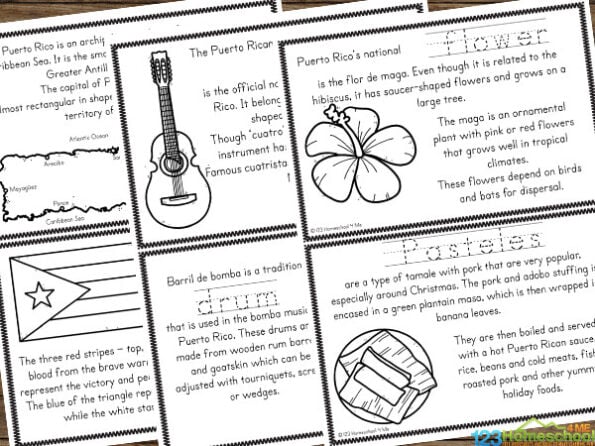 Puerto Rico is an archip
ribbean Sea. It is the sma
Greater Antill
The capital of P
lmost rectangular in shap
territory of
Atlantic Ocean
Arecibo
Sa
Mayagüez
Ponce
Caribbean Sea
The Puerto Rican
is the official na
Rico. It belong
shaped
Though 'cuatro'
instrument ha
Famous cuatrista
Puerto Rico's national flower
is the flor de maga. Even though it is related to the
hibiscus, it has saucer-shaped flowers and grows on a
large tree.
The maga is an ornamental
plant with pink or red flowers
that grows well in tropical
climates.
These flowers depend on birds
and bats for dispersal.
©123 Homeschool 4 Me
The three red stripes – top,
blood from the brave warr
represent the victory and pea
The blue of the triangle rep
while the white star
Barril de bomba is a tradition
drum
that is used in the bomba music
Puerto Rico. These drums ar
made from wooden rum barr
and goatskin which can be
adjusted with tourniquets, scre
or wedges.
Pasteles
are a type of tamale with pork that are very popular,
especially around Christmas. The pork and adobo stuffing is
encased in a green plantain masa, which is then wrapped in
banana leaves.
They are then boiled and served
with a hot Puerto Rican sauce,
rice, beans and cold meats, fish
roasted pork and other yumm
holiday foods.
©123 Homeschool 4 Me
123 Homeschool 4 ME